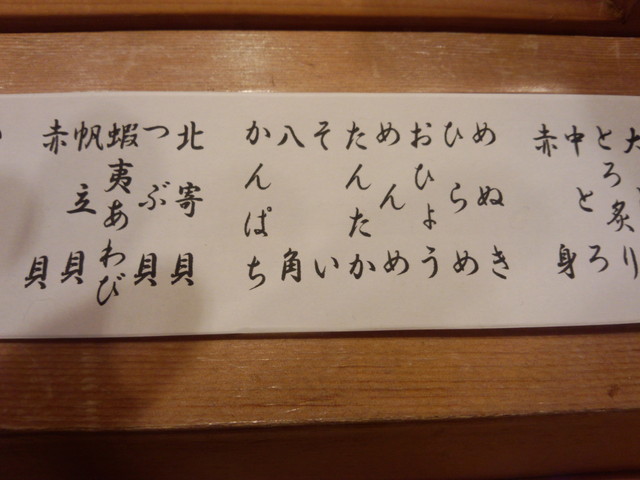 とろ炙り
中とろ
赤身
めぬき
ひらめ
おひょう
めんめ
たんたか
そい
八角
かんぱち
北寄貝
つぶ貝
蝦夷あわび
帆立貝
赤貝